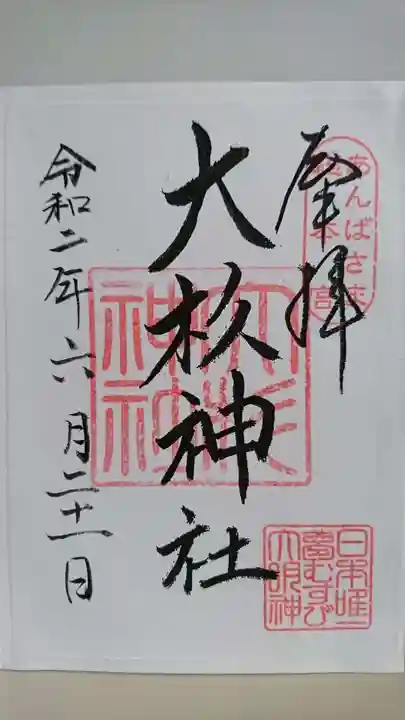 奉拝
あんばさま
総本宮
大杉神社
大杉神社
日本唯一
夢むすび
大明神
令和二年六月二十一日